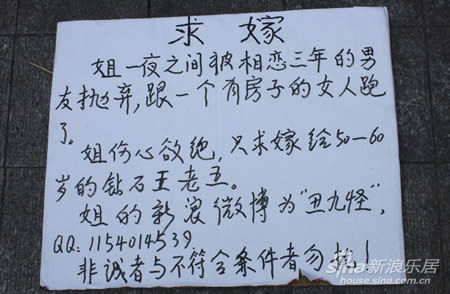 求 嫁
姐一夜之间被相恋三年的男
友抛弃,跟一个有房子的女人跑
了。
姐伤心欲绝,只求嫁给50—60
岁的钻石王老五。
姐的新浪微博为"丑九怪",
QQ:1154014539
非诚者与不符合条件者勿扰!
sina新浪乐居
house.sina.com.cn